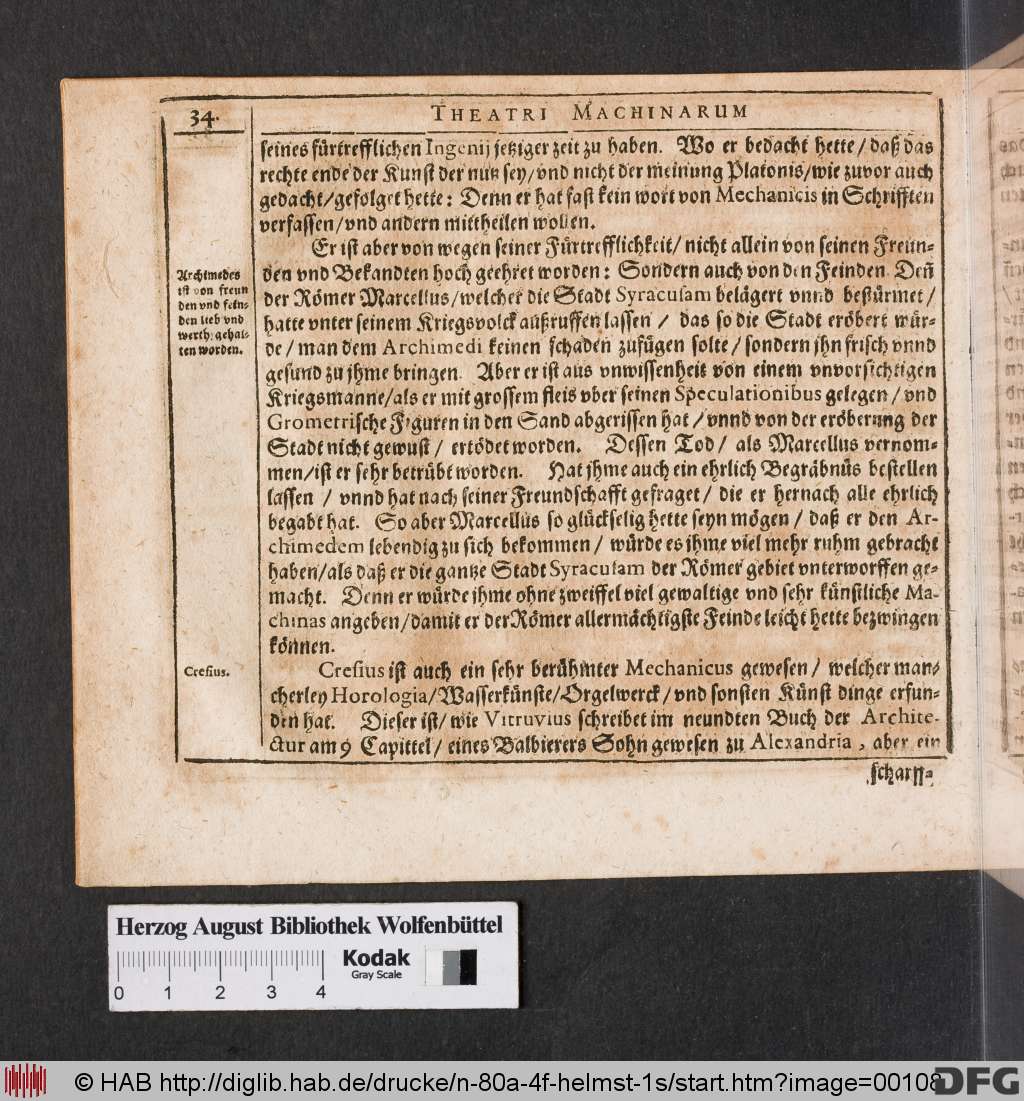 34.
THEATRI MACHINARUM
seines fürtrefflichen Ingenij jetziger zeit zu haben. Wo er bedacht hette / daß das
rechte ende der Kunst der nutz sey / vnd nicht der meinung Platonis / wie zuvor auch
gedacht / gefolget hette: Denn er hat fast kein wort von Mechanicis in Schrifften
verfassen / vnd andern mittheilen wollen.
Er ist aber von wegen seiner Fürtrefflichkeit / nicht allein von seinen Freun-
den vnd Bekandten hoch geehret worden: Sondern auch von den Feinden. Deñ
der Römer Marcellus / welcher die Stadt Syracusam belägert vnnd bestürmet /
hatte vnter seinem Kriegsvolck außruffen lassen / das so die Stadt eröbert wür-
de / man dem Archimedi keinen schaden zufügen solte / sondern jhn frisch vnnd
gesund zu jhme bringen. Aber er ist aus vnwissenheit von einem vnvorsichtigen
Kriegsmanne / als er mit grossem fleis vber seinen Speculationibus gelegen / vnd
Grometrische Figuren in den Sand abgerissen hat / vnnd von der eröberung der
Stadt nicht gewust / ertödet worden. Dessen Tod / als Marcellus vernom-
men / ist er sehr betrübt worden. Hat jhme auch ein ehrlich Begräbnüs bestellen
lassen / vnnd hat nach seiner Freundschafft gefraget / die er hernach alle ehrlich
begabt hat. So aber Marcellus so glückselig hette seyn mögen / daß er den Ar-
chimedem lebendig zu sich bekommen / würde es ihme viel mehr ruhm gebracht
haben / als daß er die gantze Stadt Syracusam der Römer gebiet vnterworffen ge-
macht. Denn er würde jhme ohne zweiffel viel gewaltige vnd sehr künstliche Ma-
chinas angeben / damit er der Römer allermächtigste Feinde leicht hette bezwingen
können.
Cresius ist auch ein sehr berühmter Mechanicus gewesen / welcher man-
cherley Horologia / Wasserkünste / Orgelwerck / vnd sonsten Künst dinge erfun-
den hat. Dieser ist / wie Vitruvius schreibet im neundten Buch der Archite-
ctur am 9 Capittel / eines Balbierers Sohn gewesen zu Alexandria, aber ein
scharff-
Archimedes
ist von freun
den vnd fein-
den lieb vnd
werth gehal-
ten worden.
Cresius.
Herzog August Bibliothek Wolfenbüttel
Kodak
Gray Scale
0 1 2 3 4
© HAB http://diglib.hab.de/drucke/n-80a-4f-helmst-1s/start.htm?image=00108
DFG